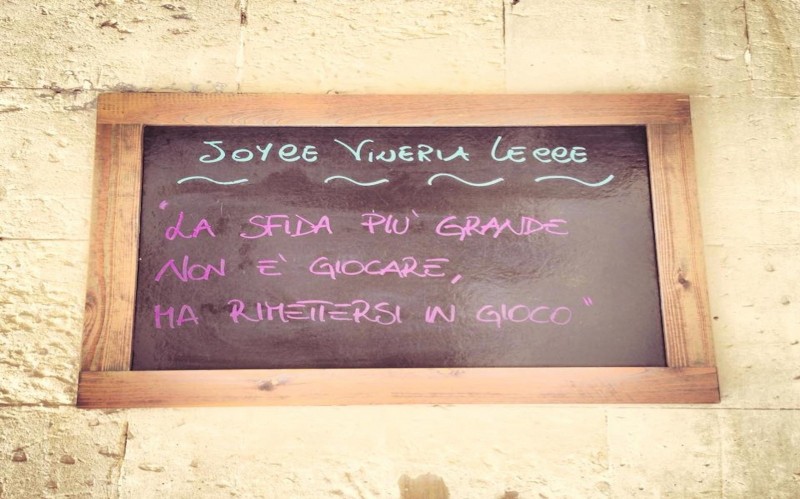 JOYCE VINERIA LECCE
"LA SFIDA PIU' GRANDE
NON E' GIOCARE,
MA RIMETTERSI IN GIOCO"